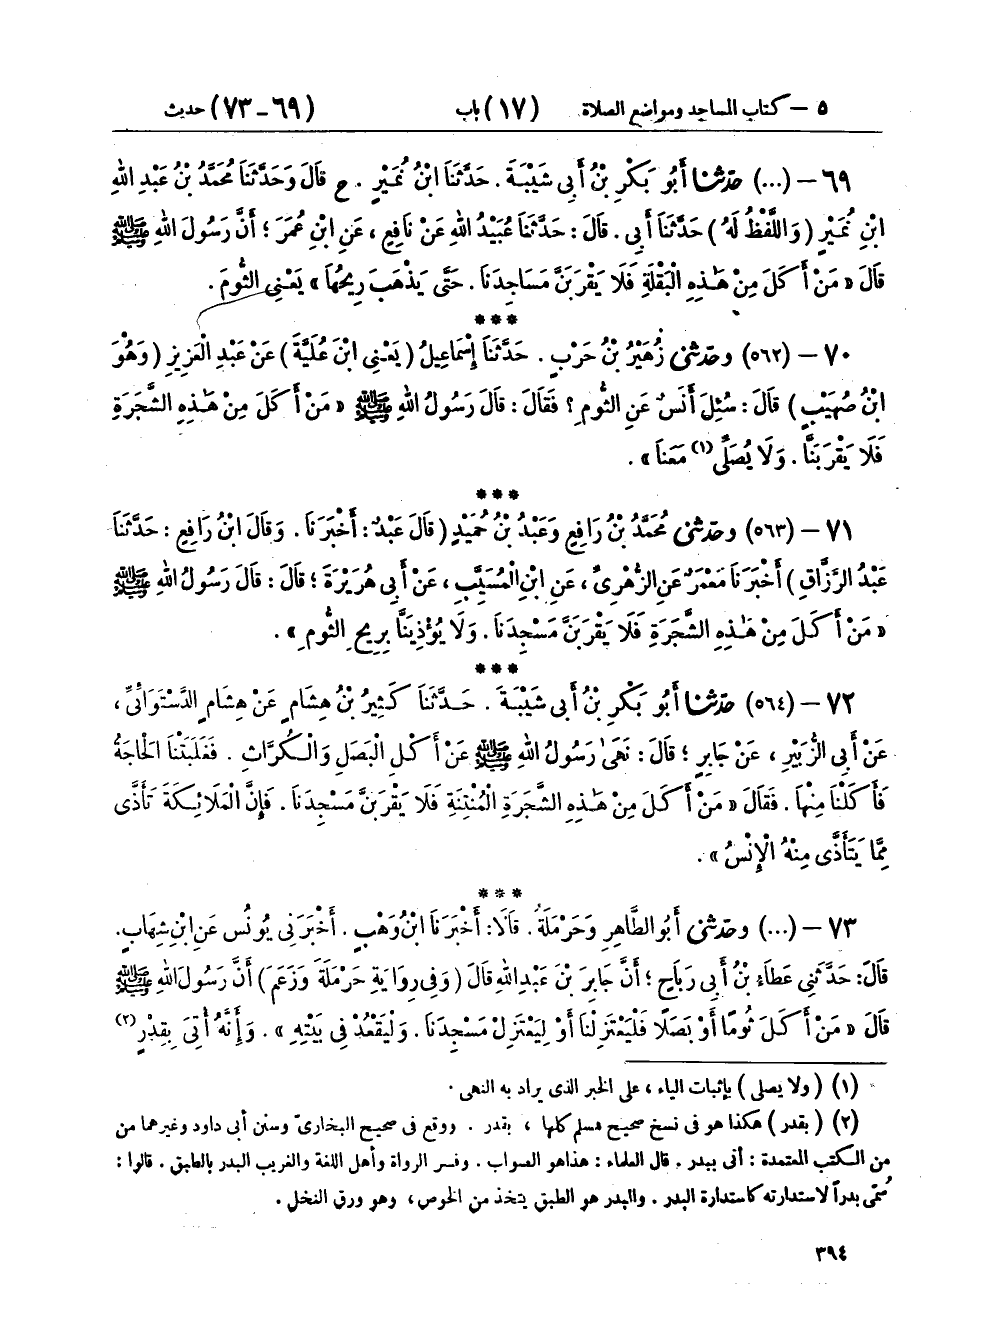 ٥ – كتاب المساجد ومواضع الصلاة (١٧) باب (٦٩–٧٣) حديث
٦٩ – (...) حَدَّثَنَا أَبُو بَكْرِ بْنُ أَبِي شَيْبَةَ. حَدَّثَنَا ابْنُ نُمَيْرٍ. ح قَالَ وَحَدَّثَنَا مُحَمَّدُ بْنُ عَبْدِ اللهِ
ابْنِ نُمَيْرٍ (وَاللَّفْظُ لَهُ) حَدَّثَنَا أَبِي. قَالَ: حَدَّثَنَا عُبَيْدُ اللهِ عَنْ نَافِعٍ، عَنِ ابْنِ عُمَرَ؛ أَنَّ رَسُولَ اللهِ ﷺ
قَالَ «مَنْ أَكَلَ مِنْ هَٰذِهِ الْبَقْلَةِ فَلَا يَقْرَبَنَّ مَسَاجِدَنَا. حَتَّى يَذْهَبَ رِيحُهَا» يَعْنِي الثُّومَ.
***
٧٠ – (٥٦٢) وحَدَّثَنِي زُهَيْرُ بْنُ حَرْبٍ. حَدَّثَنَا إِسْمَاعِيلُ (يَعْنِي ابْنَ عُلَيَّةَ) عَنْ عَبْدِ الْعَزِيزِ (وَهُوَ
ابْنُ صُهَيْبٍ) قَالَ: سُئِلَ أَنَسٌ عَنِ الثُّومِ؟ فَقَالَ: قَالَ رَسُولُ اللهِ ﷺ «مَنْ أَكَلَ مِنْ هَٰذِهِ الشَّجَرَةِ
فَلَا يَقْرَبَنَّا. وَلَا يُصَلِّي(١) مَعَنَا».
***
٧١ – (٥٦٣) وحَدَّثَنِي مُحَمَّدُ بْنُ رَافِعٍ وَعَبْدُ بْنُ حُمَيْدٍ (قَالَ عَبْدٌ: أَخْبَرَنَا. وَقَالَ ابْنُ رَافِعٍ: حَدَّثَنَا
عَبْدُ الرَّزَّاقِ) أَخْبَرَنَا مَعْمَرٌ عَنِ الزُّهْرِيِّ، عَنِ ابْنِ الْمُسَيَّبِ، عَنْ أَبِي هُرَيْرَةَ؛ قَالَ: قَالَ رَسُولُ اللهِ ﷺ
«مَنْ أَكَلَ مِنْ هَٰذِهِ الشَّجَرَةِ فَلَا يَقْرَبَنَّ مَسْجِدَنَا. وَلَا يُؤْذِيَنَّا بِرِيحِ الثُّومِ».
***
٧٢ – (٥٦٤) حَدَّثَنَا أَبُو بَكْرِ بْنُ أَبِي شَيْبَةَ. حَدَّثَنَا كَثِيرُ بْنُ هِشَامٍ عَنْ هِشَامٍ الدَّسْتَوَائِيِّ،
عَنْ أَبِي الزُّبَيْرِ، عَنْ جَابِرٍ؛ قَالَ: نَهَى رَسُولُ اللهِ ﷺ عَنْ أَكْلِ الْبَصَلِ وَالْكُرَّاثِ. فَغَلَبَتْنَا الْحَاجَةُ
فَأَكَلْنَا مِنْهَا. فَقَالَ «مَنْ أَكَلَ مِنْ هَٰذِهِ الشَّجَرَةِ الْمُنْتِنَةِ فَلَا يَقْرَبَنَّ مَسْجِدَنَا. فَإِنَّ الْمَلَائِكَةَ تَأَذَّى
مِمَّا يَتَأَذَّى مِنْهُ الْإِنْسُ».
***
٧٣ – (...) وحَدَّثَنِي أَبُو الطَّاهِرِ وَحَرْمَلَةُ. قَالَا: أَخْبَرَنَا ابْنُ وَهْبٍ. أَخْبَرَنِي يُونُسُ عَنِ ابْنِ شِهَابٍ.
قَالَ: حَدَّثَنِي عَطَاءُ بْنُ أَبِي رَبَاحٍ؛ أَنَّ جَابِرَ بْنَ عَبْدِ اللهِ قَالَ (وَفِي رِوَايَةِ حَرْمَلَةَ وَزَعَمَ) أَنَّ رَسُولَ اللهِ ﷺ
قَالَ «مَنْ أَكَلَ ثُومًا أَوْ بَصَلًا فَلْيَعْتَزِلْنَا أَوْ لِيَعْتَزِلْ مَسْجِدَنَا. وَلْيَقْعُدْ فِي بَيْتِهِ». وَإِنَّهُ أُتِيَ بِقِدْرٍ(٢)
(١) (ولا يصلى) بإثبات الياء، على الخبر الذى يراد به النهى.
(٢) (بقدر) هكذا هو فى نسخ صحيح مسلم كلها، بقدر. ووقع فى صحيح البخارىّ وسنن أبى داود وغيرهما من
من الكتب المعتمدة: أتى ببدر. قال العلماء: هذا هو الصواب. وفسر الرواة وأهل اللغة والغريب البدر بالطبق. قالوا:
سُمّى بدراً لاستدارته كاستدارة البدر. والبدر هو الطبق يتخذ من الخوص، وهو ورق النخل.
٣٩٤